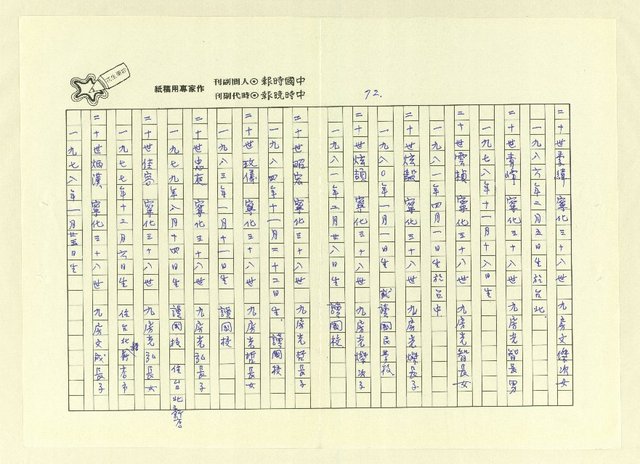 中國時報 人間副刊
中時晚報 時代副刊
作家專用稿紙
72.
二十世 寧化三十八世 九房文傑次女
一九八六年二月五日生於台北
二十世 寧化三十八世 九房光智長男
一九七八年十一月 生
二十世雲楨 寧化三十八世 九房光智長女
一九八一年四月一日生於台中
二十世炫毅 寧化三十八世 九房光燦長子
一九八0年一月一日生 就讀國民學校
二十世炫頡 寧化三十八世 九房光燦次子
一九八一年二月廿八日生 讀國校
二十世昭宏 寧化三十八世 九房光哲長子
一九八四年十一月二十二日生 讀國校
二十世 儀 寧化三十八世 九房光哲長女
一九八三年一月十一日生 讀國校
二十世 寧化三十八世 九房光弘長子
一九七九年八月十四日生 讀國校 住台北新店
二十世佳容 寧化三十八世 九房光弘長女
一九七七年十二月六日生 住台北新店市
二十世炳漢 寧化三十八世 九房文成長子
一九七八年一月廿五日生